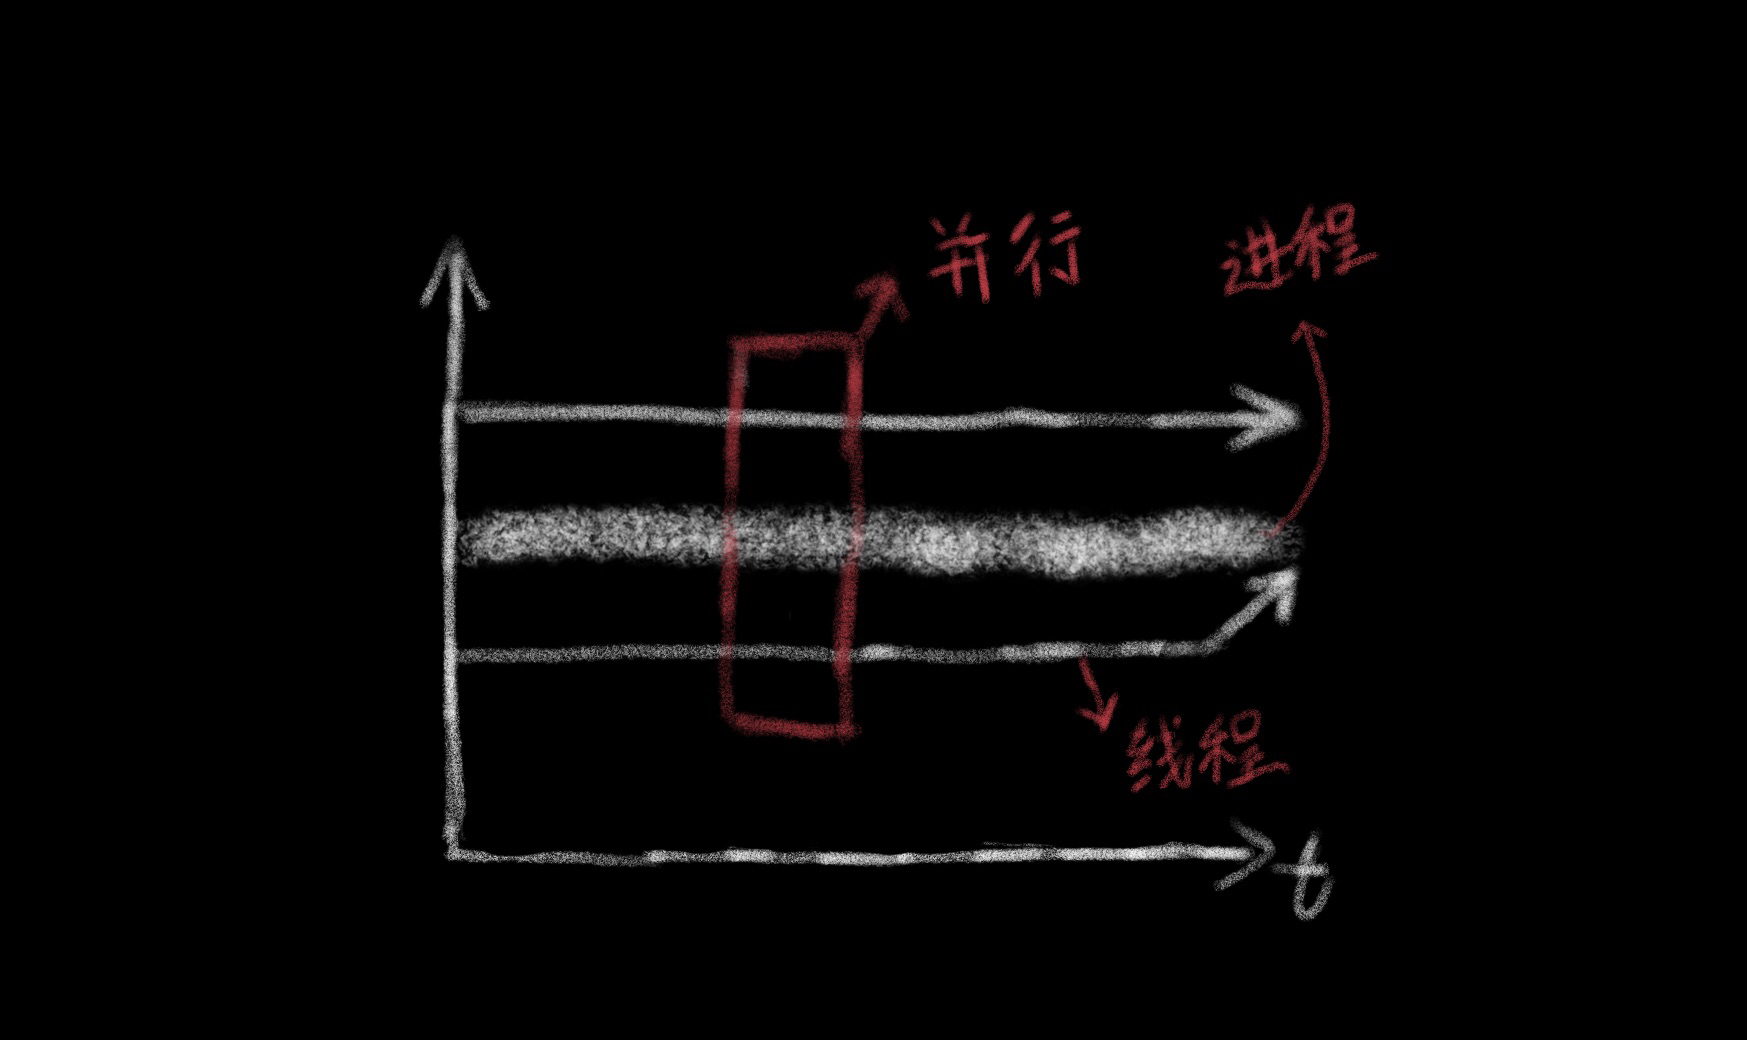 并行
进程
线程
t